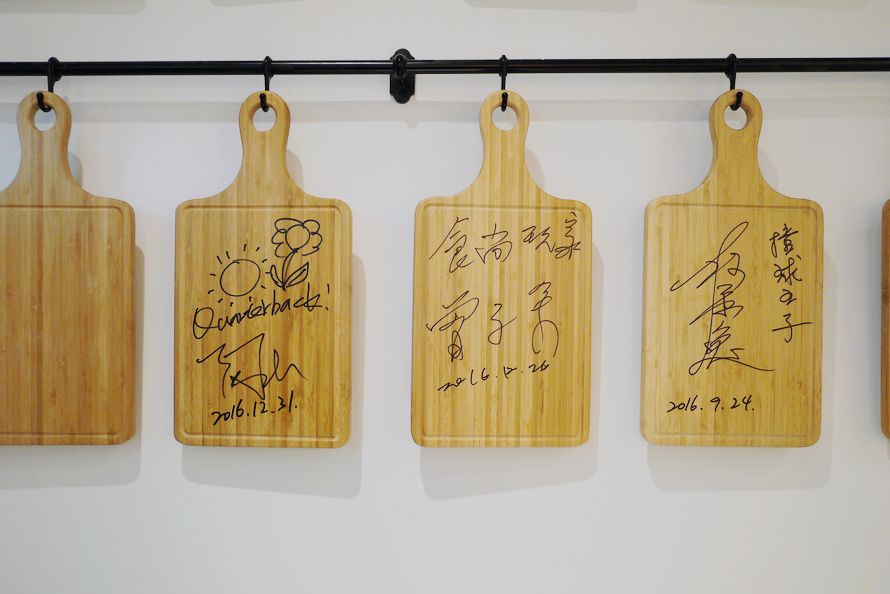 Quarterback!
2016.12.31.
食尚玩家
曾子余
2016.12.26
撞球王子
2016.9.24.